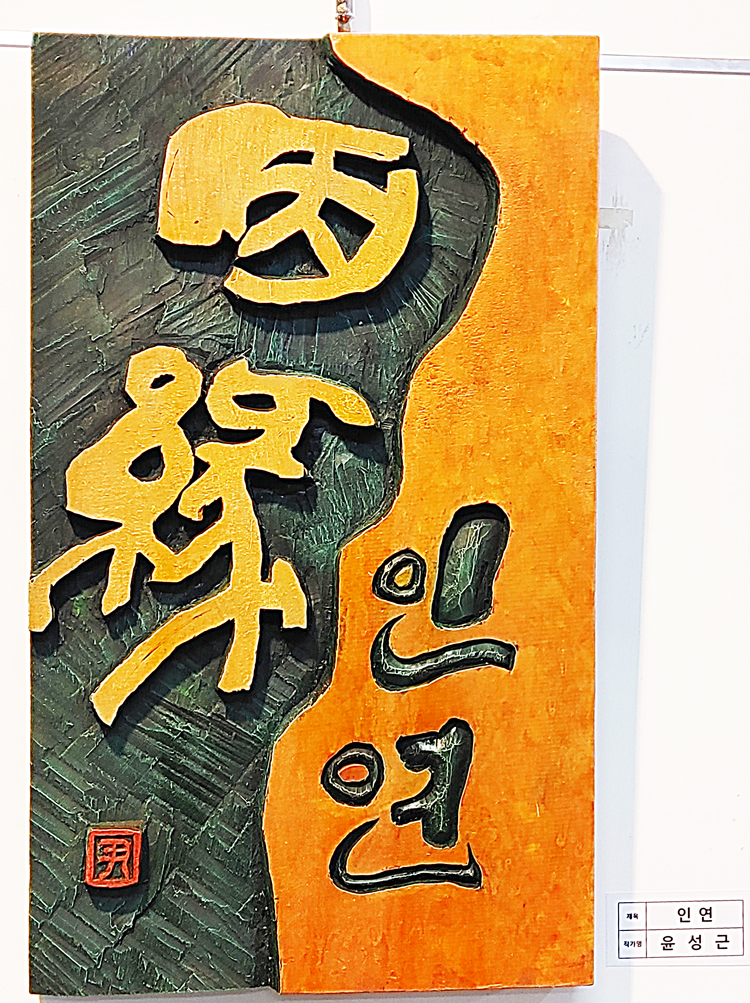 因
緣
인
연
제목 인연
작가명 윤성근